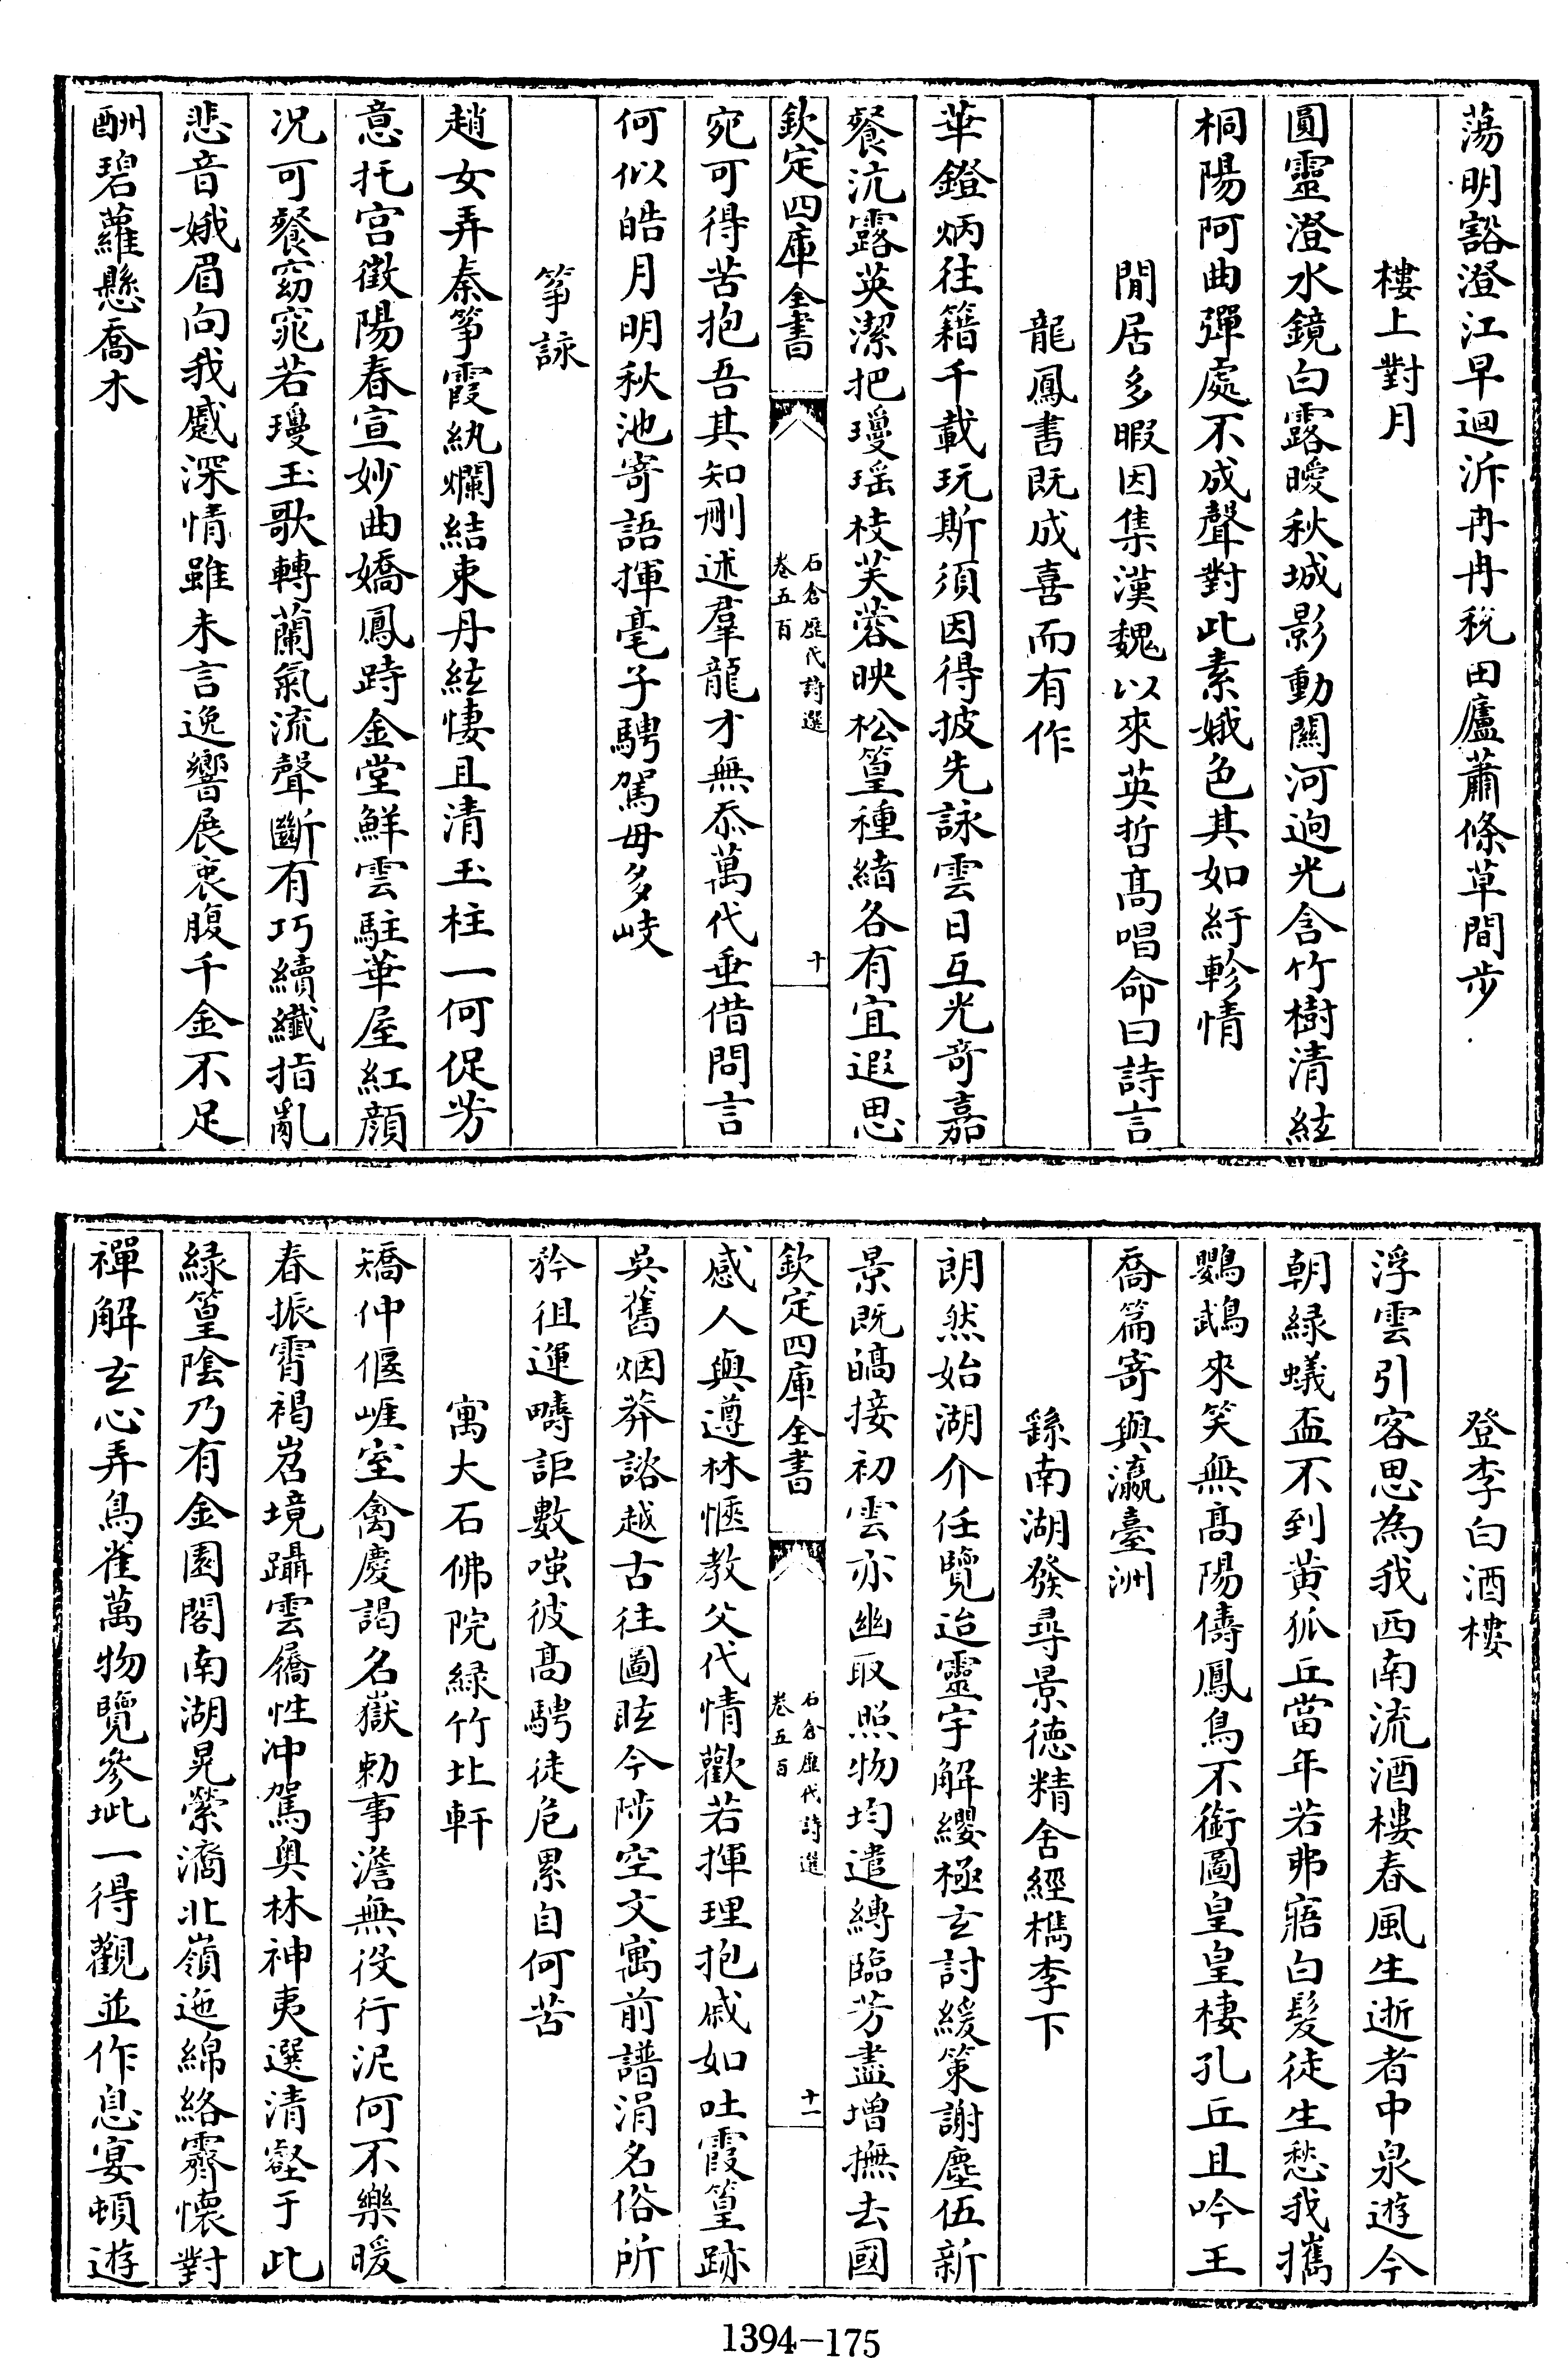 蕩明豁澄江早迴泝冉冉稅田廬蕭條草間步
樓上對月
圓靈澄水鏡白露曖秋城影動關河逈光含竹樹清絃
桐陽阿曲彈處不成聲對此素娥色其如紆軫情
閒居多暇因集漢魏以來英哲髙唱命曰詩言
龍鳳書既成喜而有作
華鐙炳往籍千載玩斯須因得披先詠雲日互光竒嘉
餐沆露英潔把瓊瑶枝芙蓉映松篁種緒各有宜遐思
欽定四庫全書
石倉歷代詩選
卷五百
十
宛可得苦抱吾其知刪述羣龍才無忝萬代垂借問言
何似皓月明秋池寄語揮毫子騁駕毋多岐
筝詠
趙女弄秦筝霞紈爛結束丹絃悽且清玉柱一何促芳
意托宫徵陽春宣妙曲嬌鳳跱金堂鮮雲駐華屋紅顔
况可餐窈窕若瓊玉歌轉蘭氣流聲斷有巧續纖指亂
悲音娥眉向我蹙深情雖未言逸響展衷腹千金不足
酬碧蘿懸喬木
登李白酒樓
浮雲引客思為我西南流酒樓春風生逝者中泉遊今
朝緑蟻盃不到黄狐丘當年若弗寤白髪徒生愁我攜
鸚鵡來笑無髙陽儔鳳鳥不銜圖皇皇棲孔丘且吟王
喬篇寄與瀛臺洲
繇南湖發尋景徳精舍經檇李下
朗然始湖介任覽迨靈宇解纓極玄討緩策謝塵伍新
景既皜接初雲亦幽取照物均遣縛臨芳盡增撫去國
欽定四庫全書
石倉歷代詩選
卷五百
十一
感人與遵林愜教父代情歡若揮理抱戚如吐霞篁跡
吳舊烟莽諮越古往圖眩今陟空文寓前譜涓名俗所
矜徂運疇詎數嗤彼髙騁徒危累自何苦
寓大石佛院緑竹北軒
矯仲偃崕室禽慶謁名嶽勅事澹無役行泥何不樂暖
春振霄褐岧境躡雲屩性冲駕奥林神夷選清壑于此
緑篁陰乃有金園閣南湖晃縈潏北嶺迤綿絡霽懷對
禪解玄心弄鳥雀萬物覽參玼一得觀並作息宴頓遊
1394—175